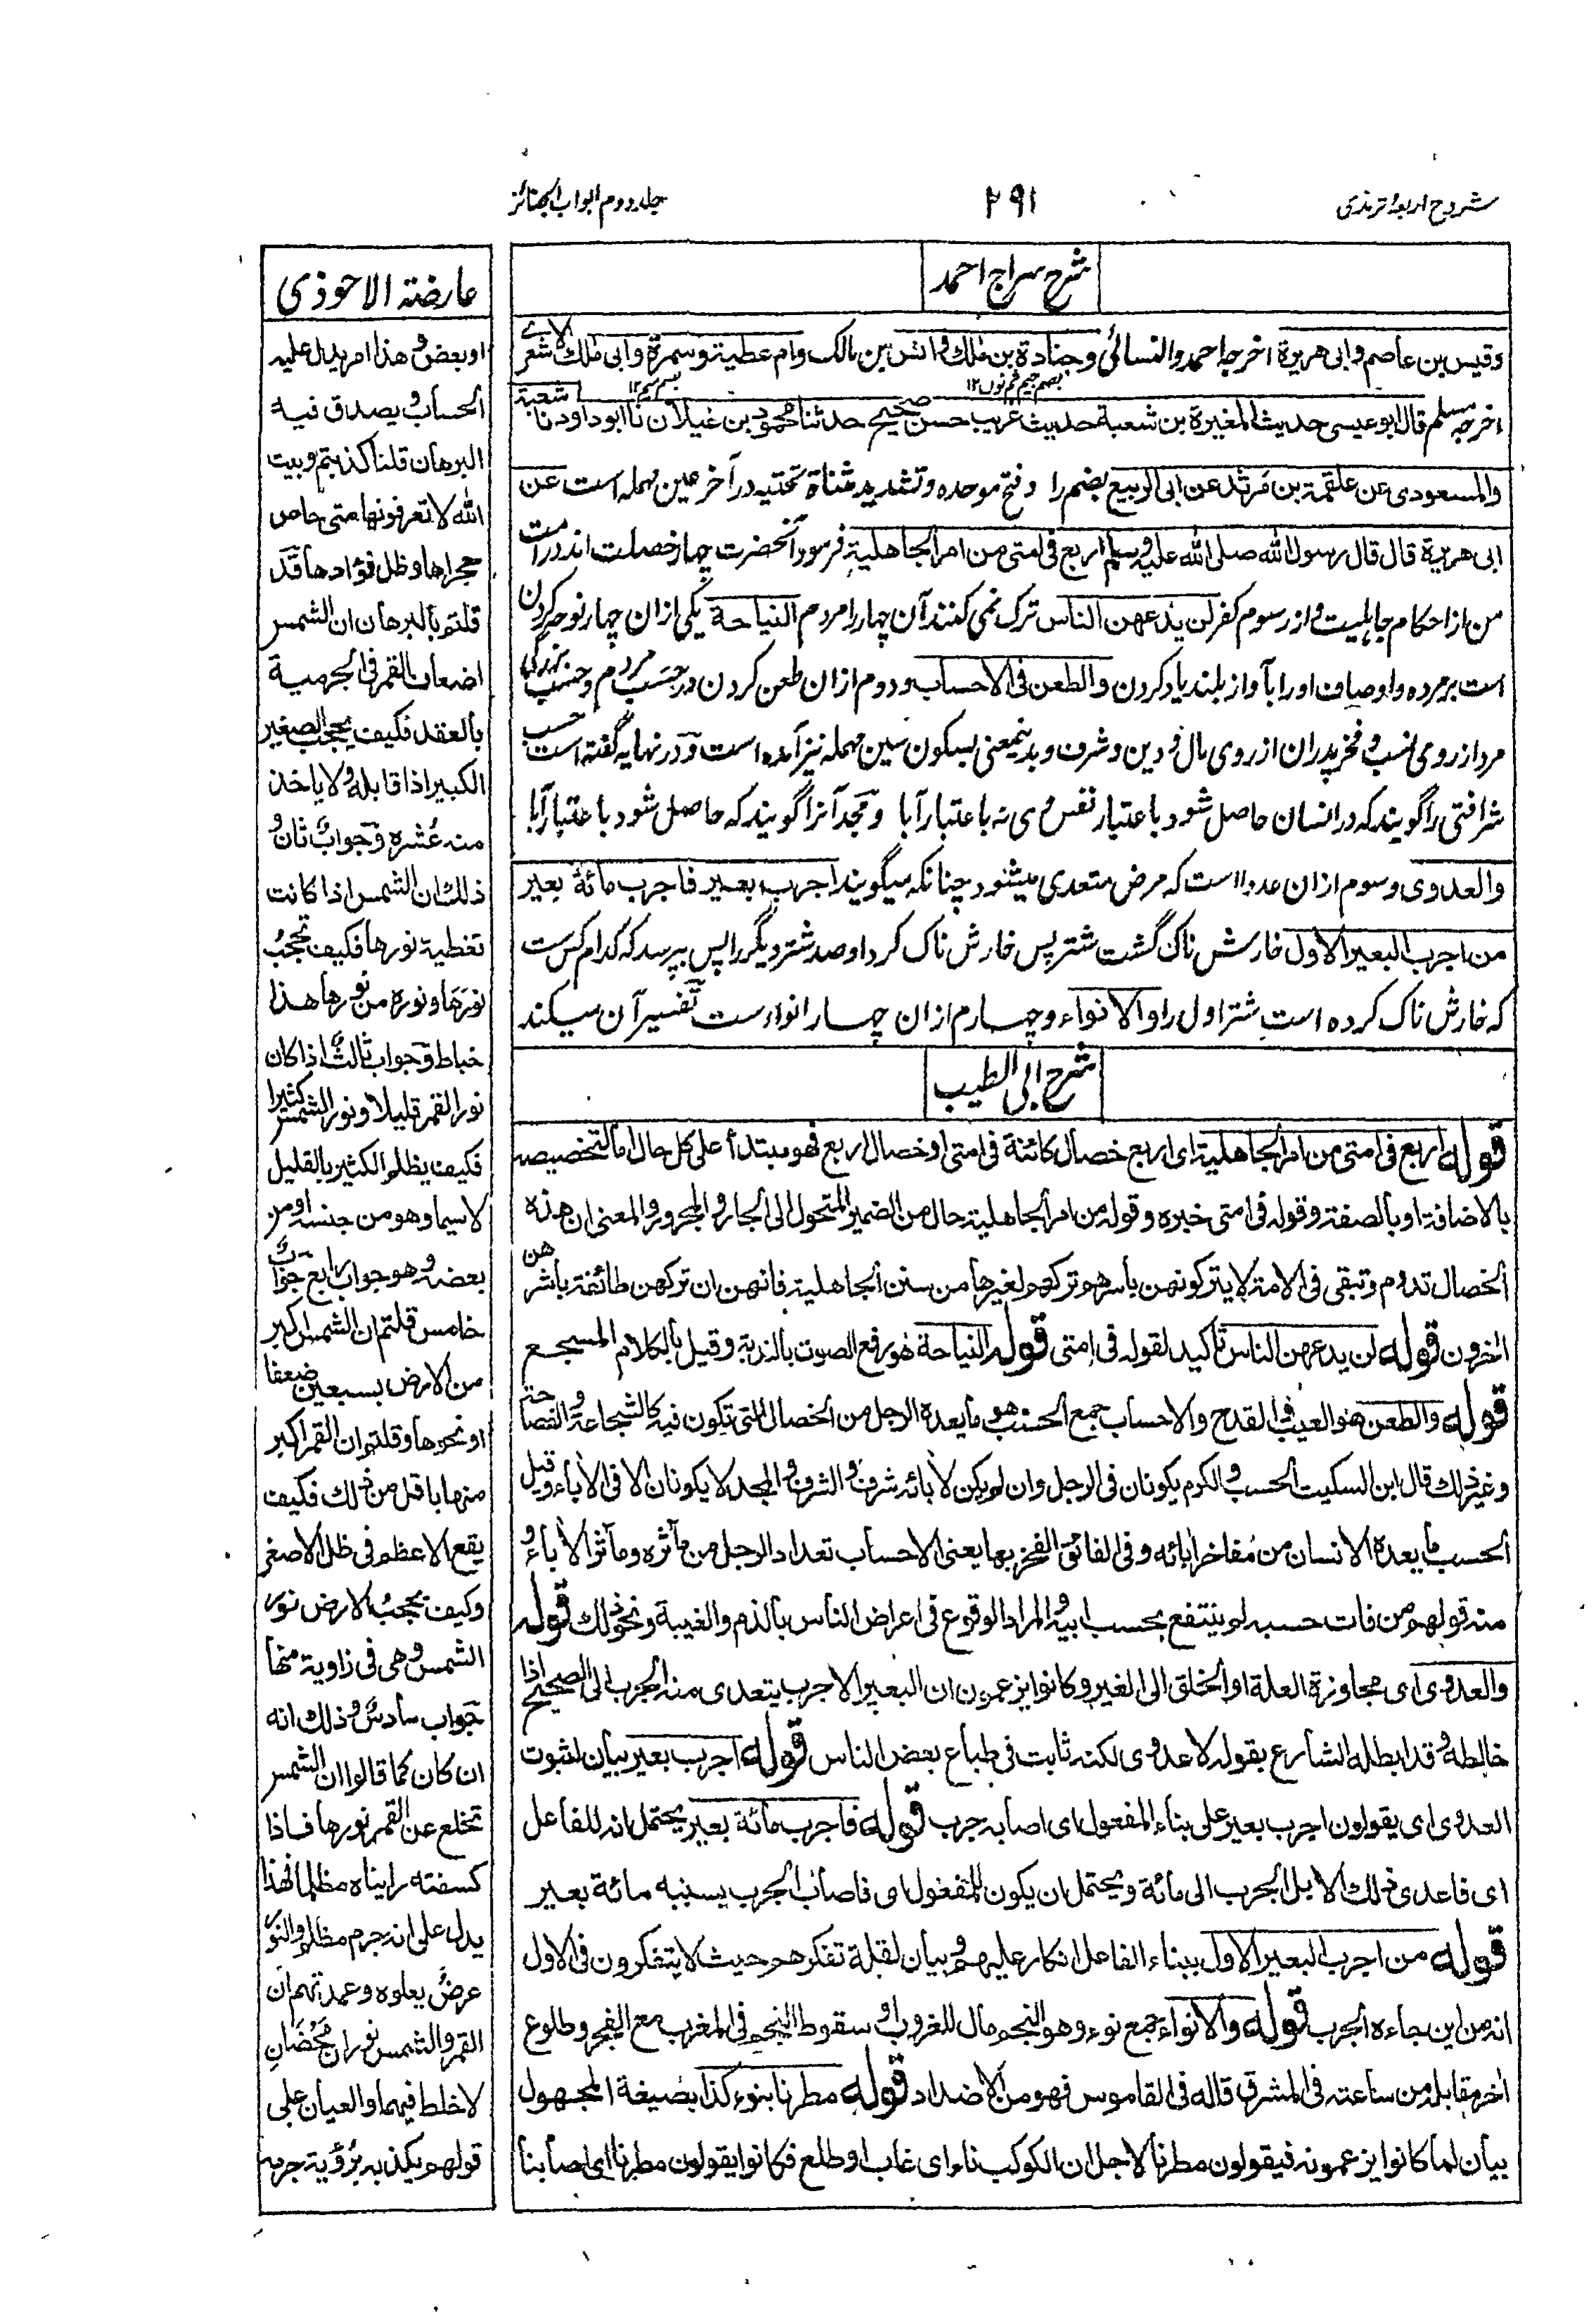 شروح اربعۂ ترمذی
۲۹۱
جلد دوم ابواب الجنائز
شرح سراج احمد
وقیس بن عاصم وابی هریرة اخرجه احمد والنسائی وجنادة بن مٰلک وانس بن مالک وام عطیة وسمرة وابی مٰلک الاشعری
بضم جیم ثم نون ۱۲
اخرجه مسلم قال ابو عیسی حدیث المغیرة بن شعبة حدیث غریب حسن صحیح حدثنا محمود بن غیلان نا ابو داود نا شعبة
والمسعودی عن علقمة بن مرثد عن ابی الربیع بضم را و فتح موحده و تشدید مثناة تحتیه در آخر عین مهمله است عن
ابی هریرة قال قال رسول الله صلی الله علیه وسلم اربع فی امتی من امر الجاهلیة فرمود آنحضرت چهار خصلت اند در امت
من از احکام جاهلیت و از رسوم کفر لن یدعهن الناس ترک نمی کنند آن چهار را مردم النیاحة یکی ازان چهار نوحه کردن
است بر مرده و اوصاف او را بآواز بلند یاد کردن والطعن فی الاحساب و دوم ازان طعن کردن در حسب مردم و حسب بزرگی
مرد از روی نسب و فخر پدران از روی مال و دین و شرف و بدینمعنی بسکون سین مهمله نیز آمده است و در نهایه گفته است حسب
شرافتی را گویند که در انسان حاصل شود باعتبار نفس وی نه باعتبار آبا و مجد آنرا گویند که حاصل شود باعتبار آبا
والعدوی و سوم ازان عدوا است که مرض متعدی میشود چنانکه میگویند اجرب بعیر فاجرب مائة بعیر
من اجرب البعیر الاول خارش ناک گشت شتر پس خارش ناک کرد او صد شتر دیگر را پس بپرسد که کدام کس ست
که خارش ناک کرده است شتر اول را والانواء و چهارم ازان چهار انواء ست تفسیر آن میکند
شرح ابی الطیب
قوله اربع فی امتی من امر الجاهلیة ای اربع خصال کائنة فی امتی او خصال اربع فهو مبتدأ علی کل حال اما لتخصیصه
بالاضافة او بالصفة وقوله فی امتی خبره وقوله من امر الجاهلیة حال من الضمیر المتحول الی الجار والمجرور والمعنی ان هذه
الخصال تدوم وتبقی فی الامة لایترکونهن باسرهم ترکهم لغیرها من سنن الجاهلیة فانهن ان ترکهن طائفة باشرهن
اخرون قوله لن یدعهن الناس تأکید لقوله فی امتی قوله النیاحة هو رفع الصوت بالندبة وقیل بالکلام المسجع
قوله والطعن هو العیب والقدح والاحساب جمع الحسب هو مایعده الرجل من الخصال التی تکون فیه کالشجاعة والفصاحة
وغیر ذلک قال ابن السکیت الحسب والکرم یکونان فی الرجل وان لم یکن لأبائه شرف والشرف والمجد لا یکونان الا فی الأباء وقیل
الحسب ما یعده الانسان من مفاخر ابائه وفی الفائق الفخر بها یعنی الاحساب تعداد الرجل من مآثره ومآثر الأباء و
منه قولهم من فات حسبه لم ینتفع بحسب ابیه والمراد الوقوع فی اعراض الناس بالذم والغیبة ونحو ذلک قوله
والعدوی ای مجاوزة العلة او الخلق الی الغیر وکانوا یزعمون ان البعیر الاجرب یتعدی منه الجرب الی الصحیح اذا
خالطه وقد ابطله الشارع بقوله لا عدوی لکنه ثابت فی طباع بعض الناس قوله اجرب بعیر بیان لثبوت
العدوی ای یقولون اجرب بعیر علی بناء المفعول ای اصابه جرب قوله فاجرب مائة بعیر یحتمل انه للفاعل
ای فاعدی ذلک الابل الجرب الی مائة ویحتمل ان یکون للمفعول ای فاصاب الجرب بسببه مائة بعیر
قوله من اجرب البعیر الاول ببناء الفاعل انکار علیهم وبیان لقلة تفکرهم حیث لا یتفکرون فی الاول
انه من این جاءه الجرب قوله والانواء جمع نوء وهو النجم مال للغروب او سقوط النجم فی المغرب مع الفجر وطلوع
اخر مقابله من ساعته فی المشرق قاله فی القاموس فهو من الاضداد قوله مطرنا بنوء کذا بصیغة المجهول
بیان لما کانوا یزعمونه فیقولون مطرنا لاجل ان الکوکب ناء ای غاب او طلع فکانوا یقولون مطرنا ای اصابنا
عارضة الاحوذی
او بعض وهذا امر یدل علیه
الحساب ویصدق فیه
البرهان قلنا کذبتم وبیت
الله لا تعرفونها متی حاص
حجراها وظل فؤادها قد
قلتم بالبرهان ان الشمس
اضعاف القمر فی الجرمیة
بالعقد فکیف یحجب الصغیر
الکبیر اذا قابله ولا یاخذ
منه عشره وجواب ثان و
ذلک ان الشمس اذا کانت
تغطیة نورها فکیف تحجب
نورها ونوره من نورها هذا
خباط وجواب ثالث اذا کان
نور القمر قلیلا ونور الشمس کثیرا
فکیف یظلم الکثیر بالقلیل
لاسیما وهو من جنسه او من
بعضه وهو جواب رابع جواب
خامس قلتم ان الشمس اکبر
من الارض بسبعین ضعفا
او نحوها وقلتم ان القمر اکبر
منها باقل من ذلک فکیف
یقع الاعظم فی ظل الاصغر
وکیف تحجب الارض نور
الشمس وهی فی زاویة منها
جواب سادس وذلک انه
ان کان کما قالوا ان الشمس
تخلع عن القمر نورها فاذا
کسفته رایناه مظلما فهذا
یدل علی انه جرم مظلم والنور
عرض یعلوه وعمدتهم ان
القمر والشمس نوران محضان
لاخلط فیهما والعیان علی
قولهم یکذبه برؤیة جرمه